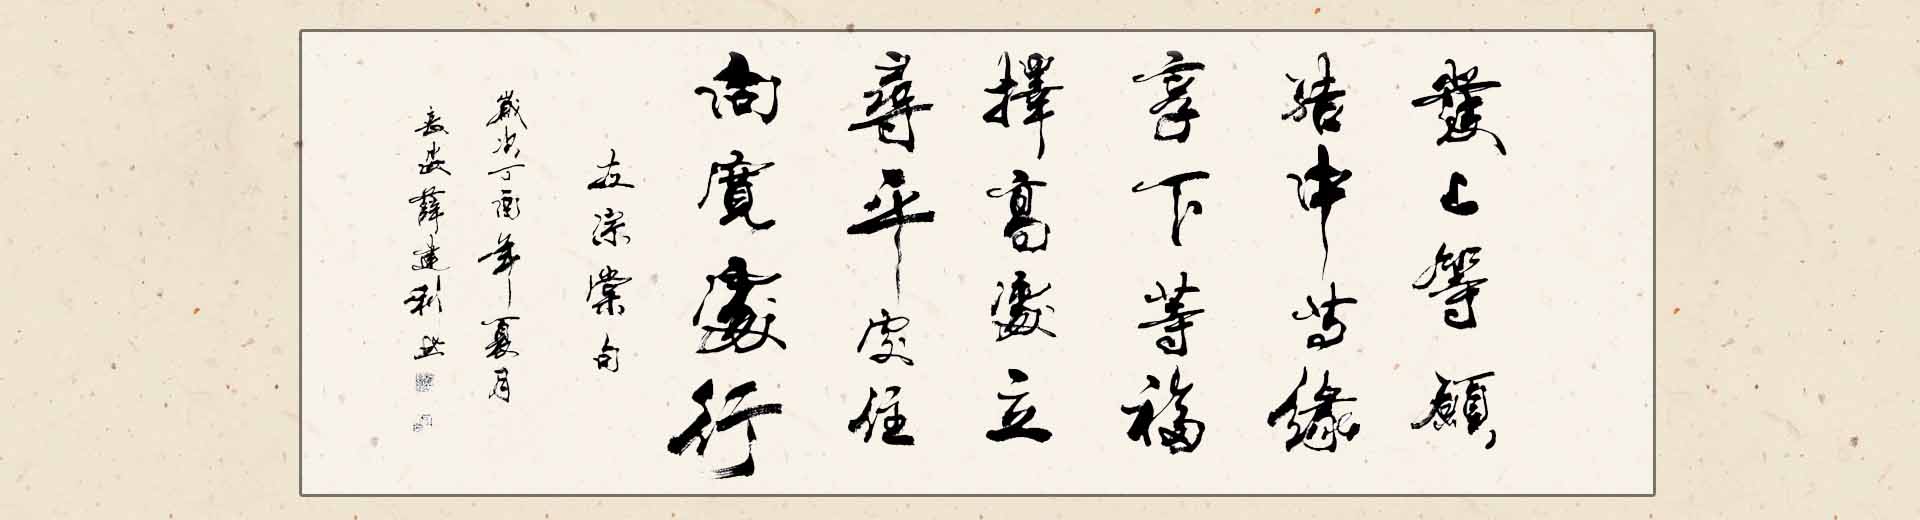 發上等願
結中等緣
享下等福
擇高處立
尋平處住
向寬處行
左宗棠句
歲次丁酉年夏月
長安薛建利書